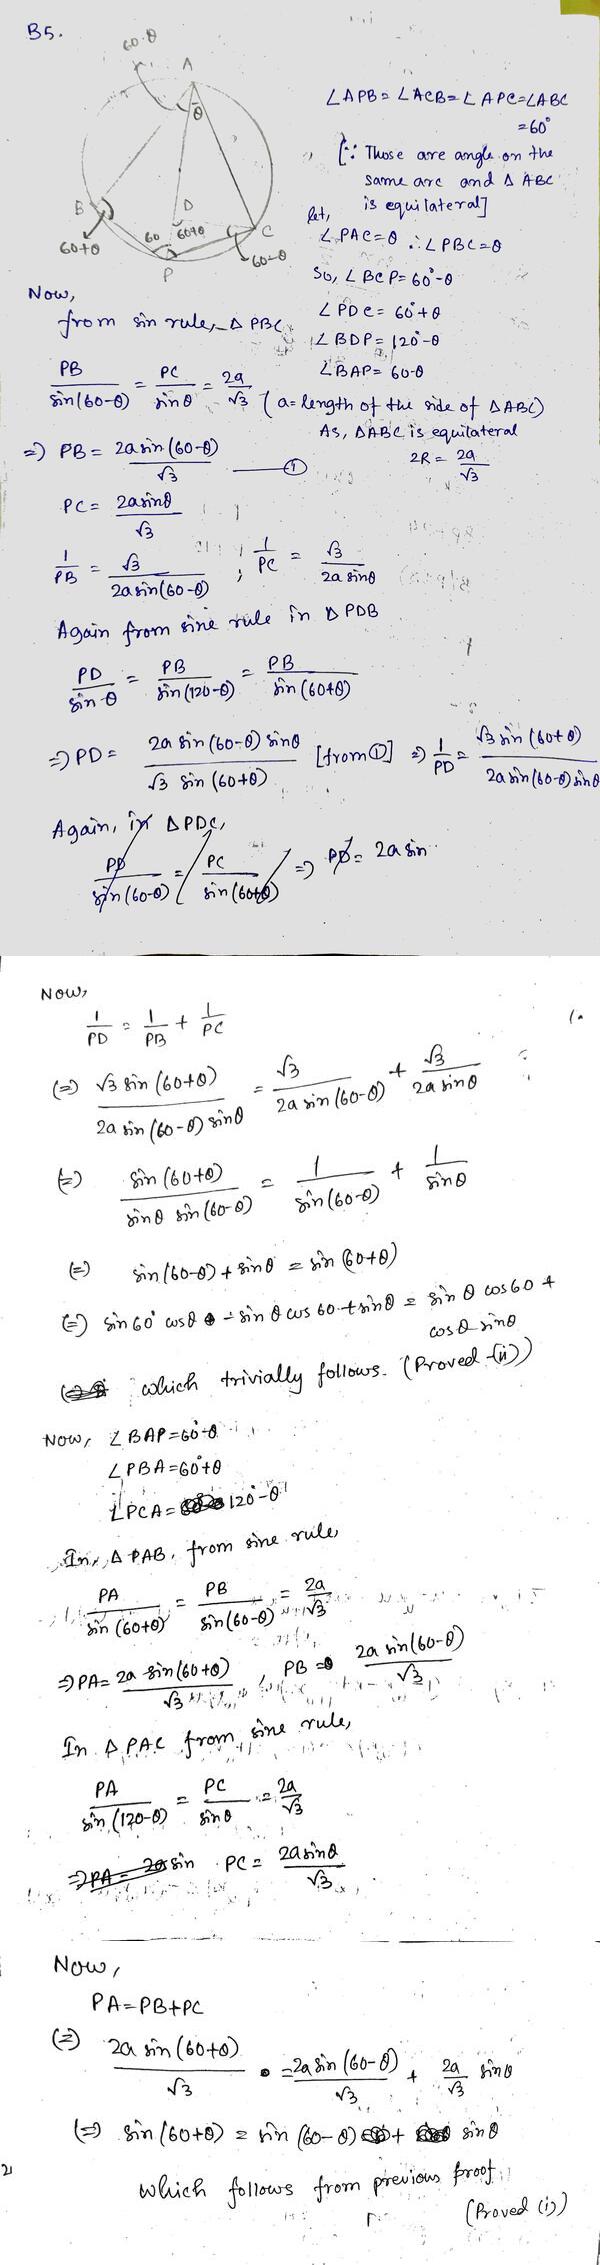 B5.
60-θ
A
θ
B
D
C
60+θ
60
60+θ
60-θ
P
∠APB = ∠ACB = ∠APC = ∠ABC
= 60°
[∵ Those are angle on the
same arc and Δ ABC
is equilateral]
let,
∠PAC = θ ∴ ∠PBC = θ
So, ∠BCP = 60° - θ
∠PDC = 60° + θ
∠BDP = 120° - θ
∠BAP = 60-θ
Now,
from sin rule, Δ PBC
PB/sin(60-θ) = PC/sinθ = 2a/√3 (a = length of the side of ΔABC)
As, ΔABC is equilateral
2R = 2a/√3
⇒ PB = 2a sin(60-θ)/√3 —— ①
PC = 2a sinθ/√3
1/PB = √3/2a sin(60-θ) ; 1/PC = √3/2a sinθ
Again from sine rule in Δ PDB
PD/sin θ = PB/sin(120-θ) = PB/sin(60+θ)
⇒ PD = 2a sin(60-θ) sinθ/√3 sin(60+θ) [from ①] ⇒ 1/PD = √3 sin(60+θ)/2a sin(60-θ) sinθ
Again, in ΔPDC,
PD/sin(60-θ) = PC/sin(60+θ) ⇒ PD = 2a sin
Now,
1/PD = 1/PB + 1/PC
(=) √3 sin(60+θ)/2a sin(60-θ) sinθ = √3/2a sin(60-θ) + √3/2a sinθ
(=) sin(60+θ)/sinθ sin(60-θ) = 1/sin(60-θ) + 1/sinθ
(=) sin(60-θ) + sinθ = sin(60+θ)
(=) sin60° cosθ - sinθ cos60 + sinθ = sinθ cos60 +
cosθ sinθ
which trivially follows. (Proved (ii))
Now, ∠BAP = 60°-θ
∠PBA = 60°+θ
∠PCA = 120°-θ
In, Δ PAB, from sine rule,
PA/sin(60+θ) = PB/sin(60-θ) = 2a/√3
⇒ PA = 2a sin(60+θ)/√3 , PB = 2a sin(60-θ)/√3
In Δ PAC from sine rule,
PA/sin(120-θ) = PC/sinθ = 2a/√3
⇒ PA = 2a sin PC = 2a sinθ/√3
Now,
PA = PB + PC
(=) 2a sin(60+θ)/√3 = 2a sin(60-θ)/√3 + 2a/√3 sinθ
(=) sin(60+θ) = sin(60-θ) + sinθ
which follows from previous proof
(Proved (i))